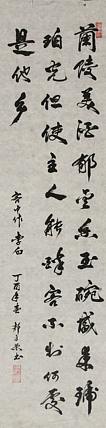 蘭陵美酒郁金香玉碗盛来琥
珀光但使主人能醉客不知何處
是他乡
客中作 李白 丁酉年春 书